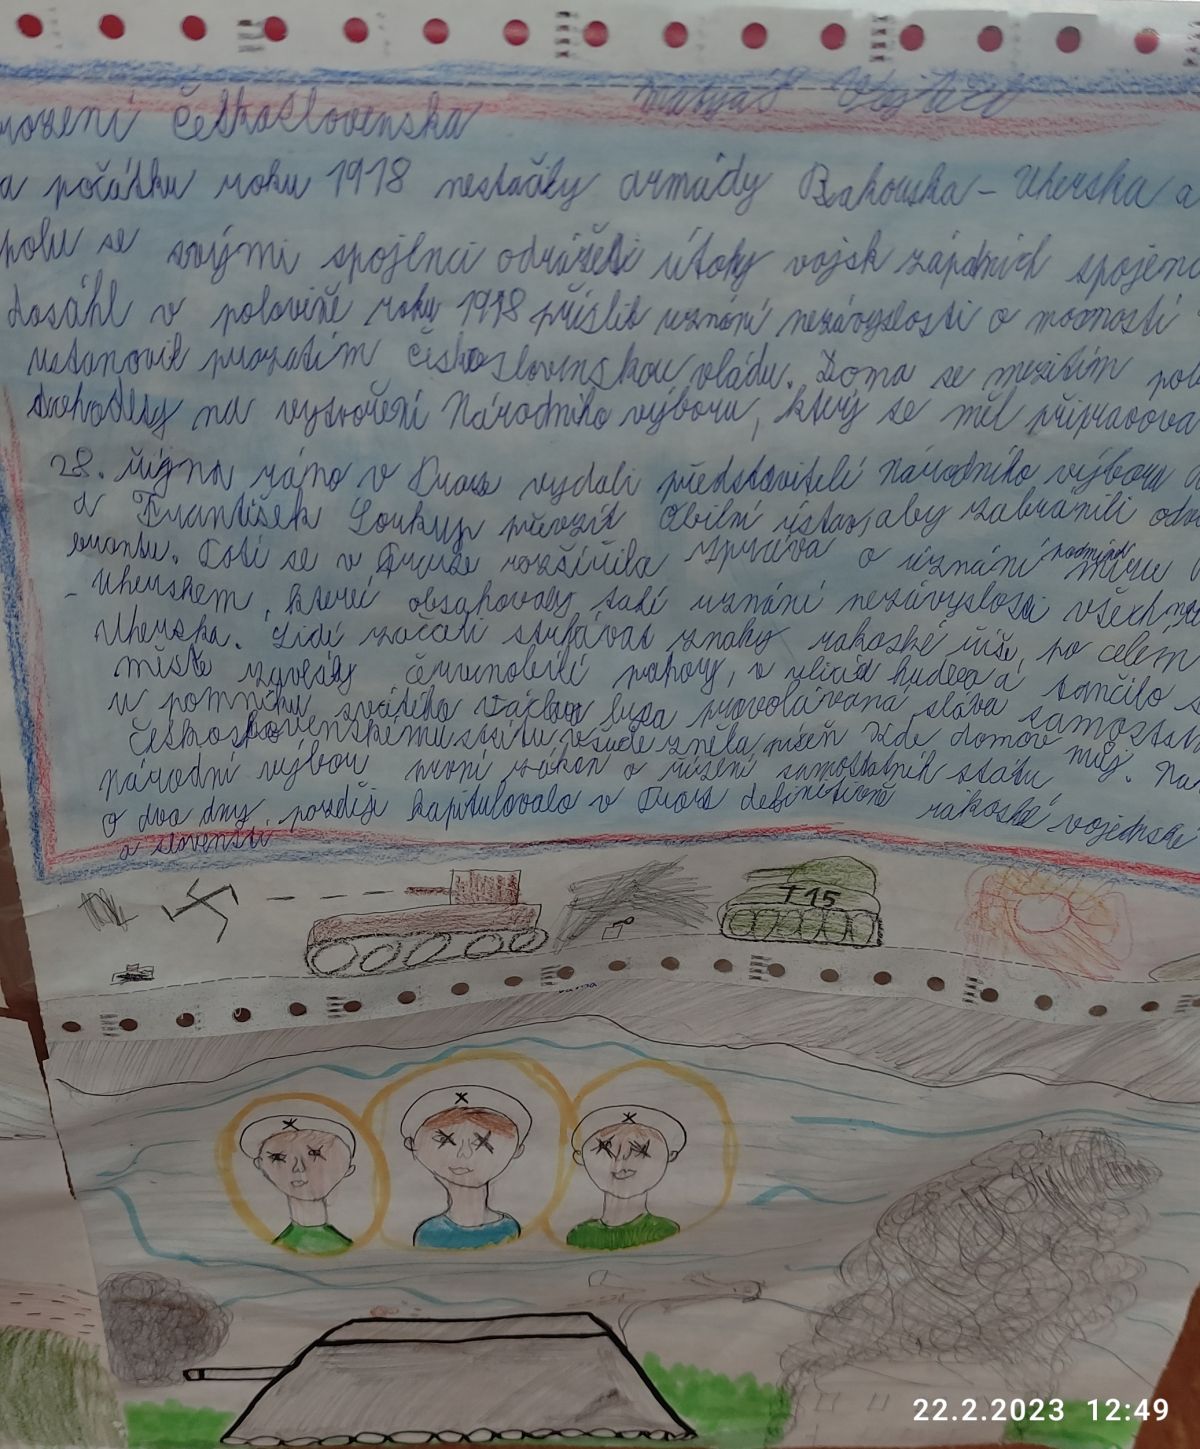 rození Československa
a počátku roku 1918 nestačily armády Rakouska - Uherska a
polu se svými spojenci odrážeti útoky vojsk západních spojenc
dosáhl v polovině roku 1918 příslib uznání nezávyslosti o mocností
ustanovil prozatím Československou vládu. Doma se mezitím pol
dohodly na vytvoření Národního výboru, který se měl připracova
28. října ráno v Praze vydali představitelé Národního výboru
a František Soukup převzít Obilní ústav, aby zabránili odv
Poté se v Praze rozšířila zpráva o uznání podmínek míru
- Uherskem, které obsahovaly také uznání nezávyslosti všech
Uherska. Lidé začali strhávat znaky rakoské říše, po celém
městě zavlály červenobílé prapory, v ulicích hudeca a tančilo s
u pomníku svatého Václava byla provolávaná sláva samostat
Československému státu všude zněla píseň Kde domov můj. Ná
Národní výbor první zákon o řízení samostatník státu
o dva dny později kapitulovalo v Praze definitivně rakoské vojenske
a slovensti
T 15
22.2.2023 12:49